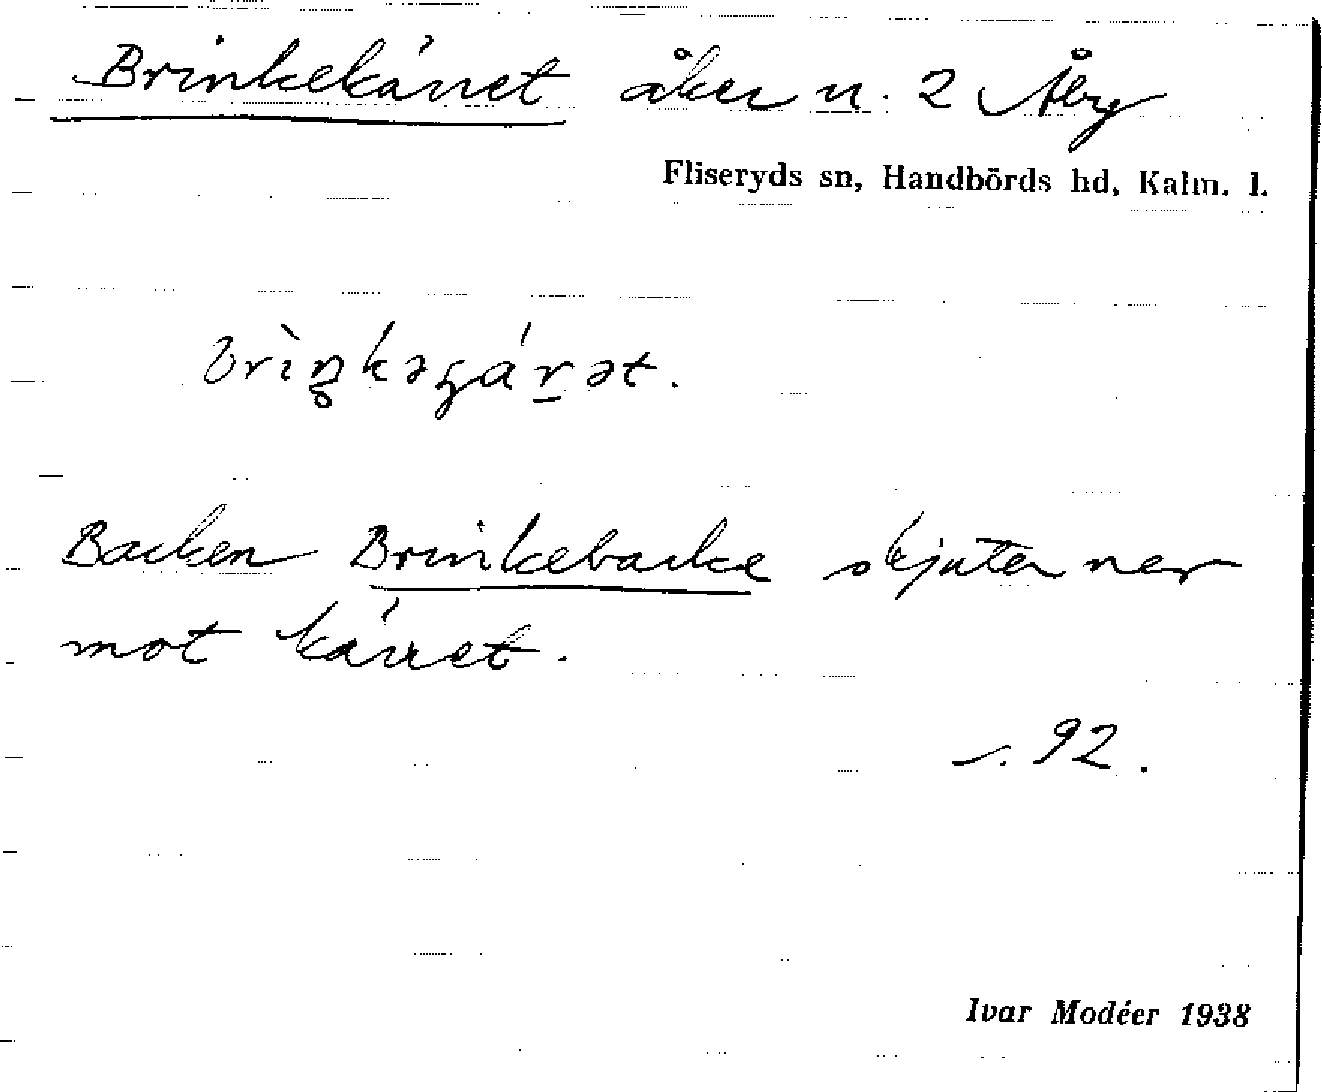 Brinkekárret åker n. 2 Åby
Fliseryds sn, Handbörds hd, Kalm. l.
Backen Brinkebacke skjuter ner
mot kárret.
s. 92.
Ivar Modéer 1938